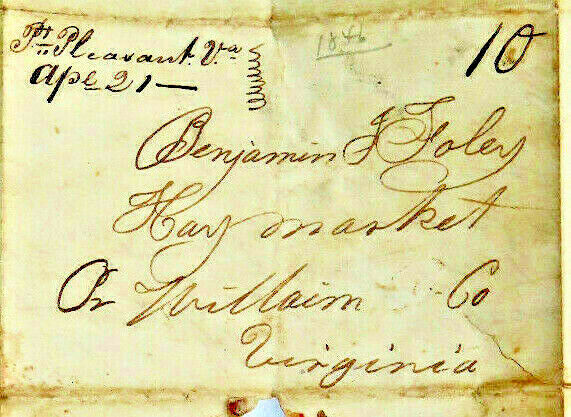 Pt Pleasant. Va
Apl 21 —
1846
10
Benjamin F Foley
Hay market
Pr Willaim Co
Virginia